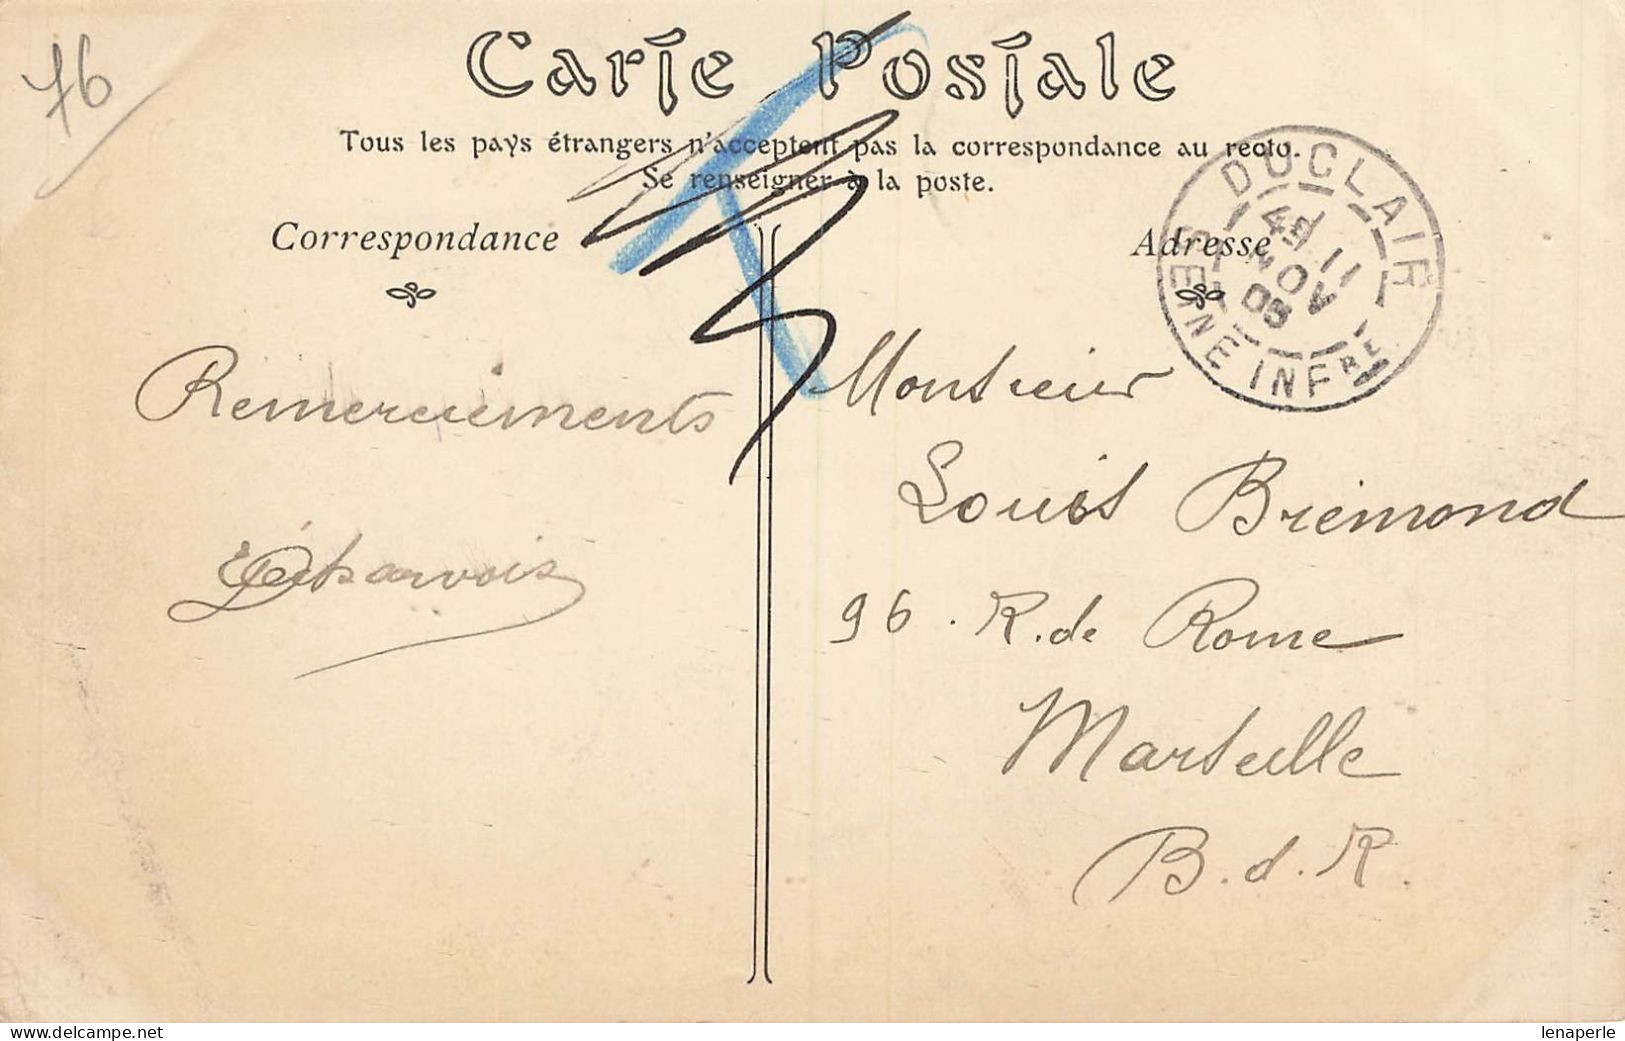 76
Carte Postale
Tous les pays étrangers n'acceptent pas la correspondance au recto.
Se renseigner à la poste.
Correspondance
Adresse
DUCLAIR
11
NOV
SEINE INFRE
Remerciements
Monsieur
Louis Brémond
96. R. de Rome
Marseille
B. d. R.
www.delcampe.net
lenaperle